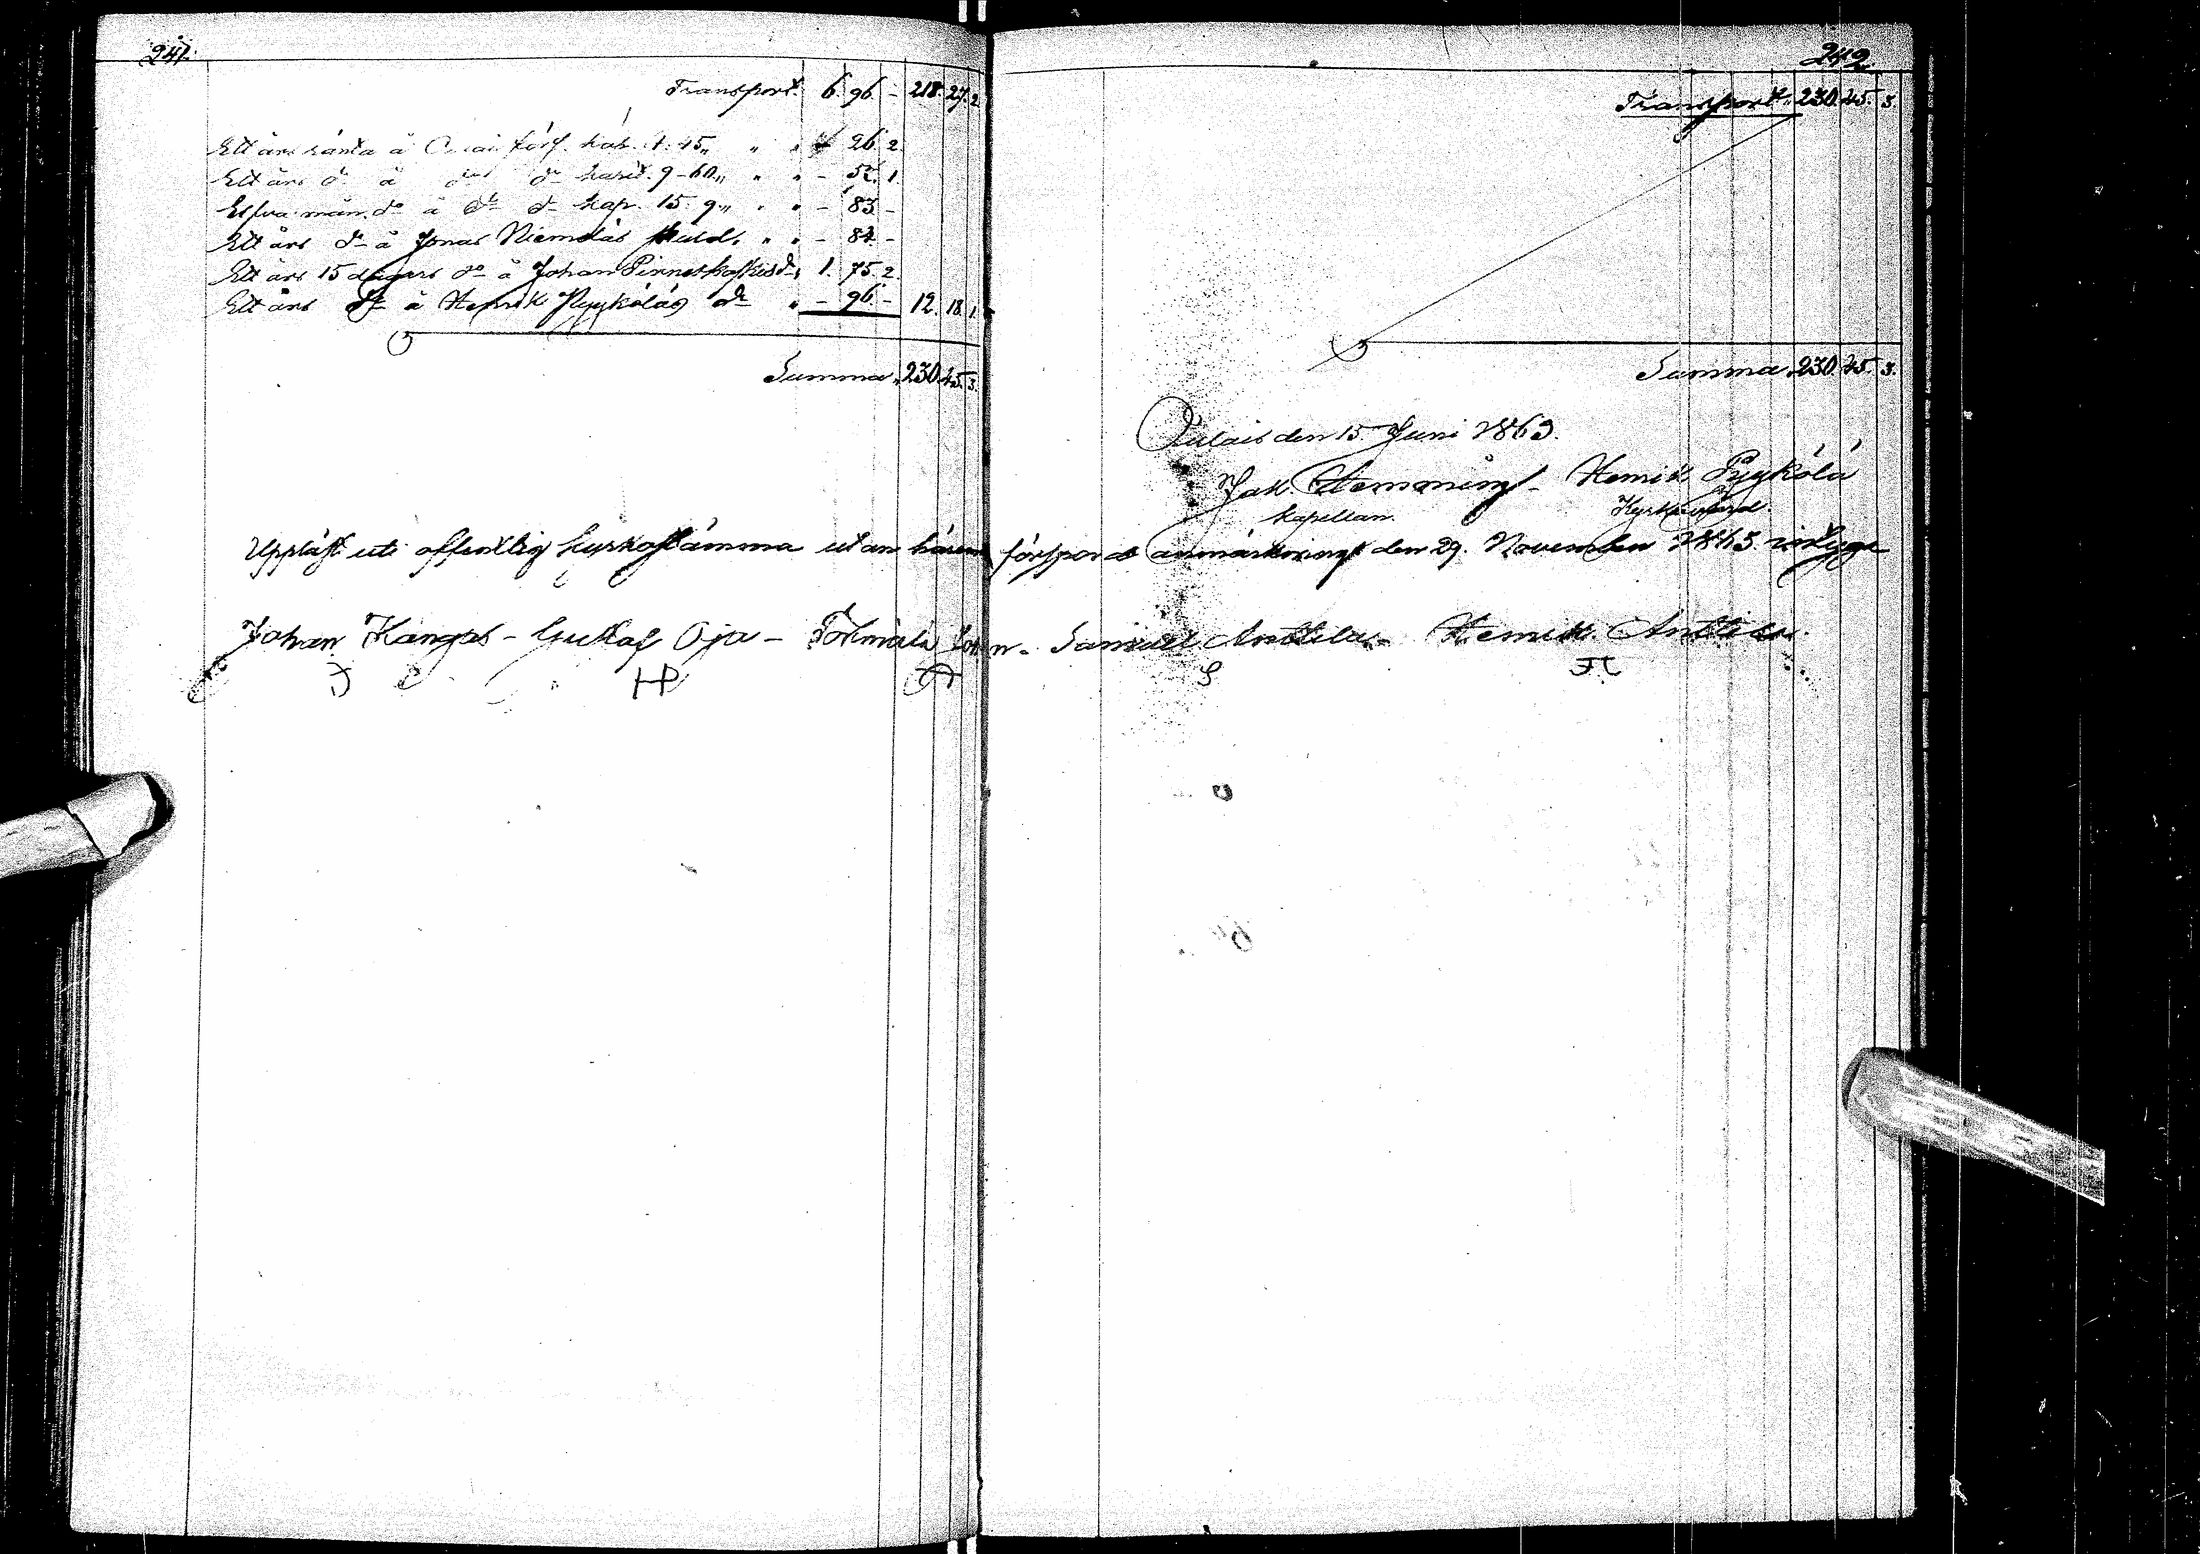 241.
Transport. 6. 96. – 218. 27. 2.
Ett års ränta å förs. 4. 45,, " " 26. 2.
Ett års d:o å d:o d:o 9–60,, " " – 52. 1.
Elfva mån. d:o å d:o d:o kap. 15. 9,, " " – 83 –
Ett års d:o å Jonas Niemeläs skuld, " " – 84 –
Ett års 15 dagars d:o å Johan Pirneskoskis d:o 1. 75. 2.
Ett års d:o å Henrik Pyyköläs d:o " – 96. – 12. 18. 1.
Summa, 230. 45. 3.
242.
Transport,, 230. 45. 3.
Summa, 230. 45. 3.
Oulais den 15 Juni 1863.
Jak. Hemming – Henrik Pyykölä
Kapellan. Kyrkovärd.
Uppläst uti offentlig kyrkostämma utan förspord anmärkning den 29. November 1863. intyga
Johan Kangas – Gustaf Oja – – Samuel Anttila – Henrik Anttila.